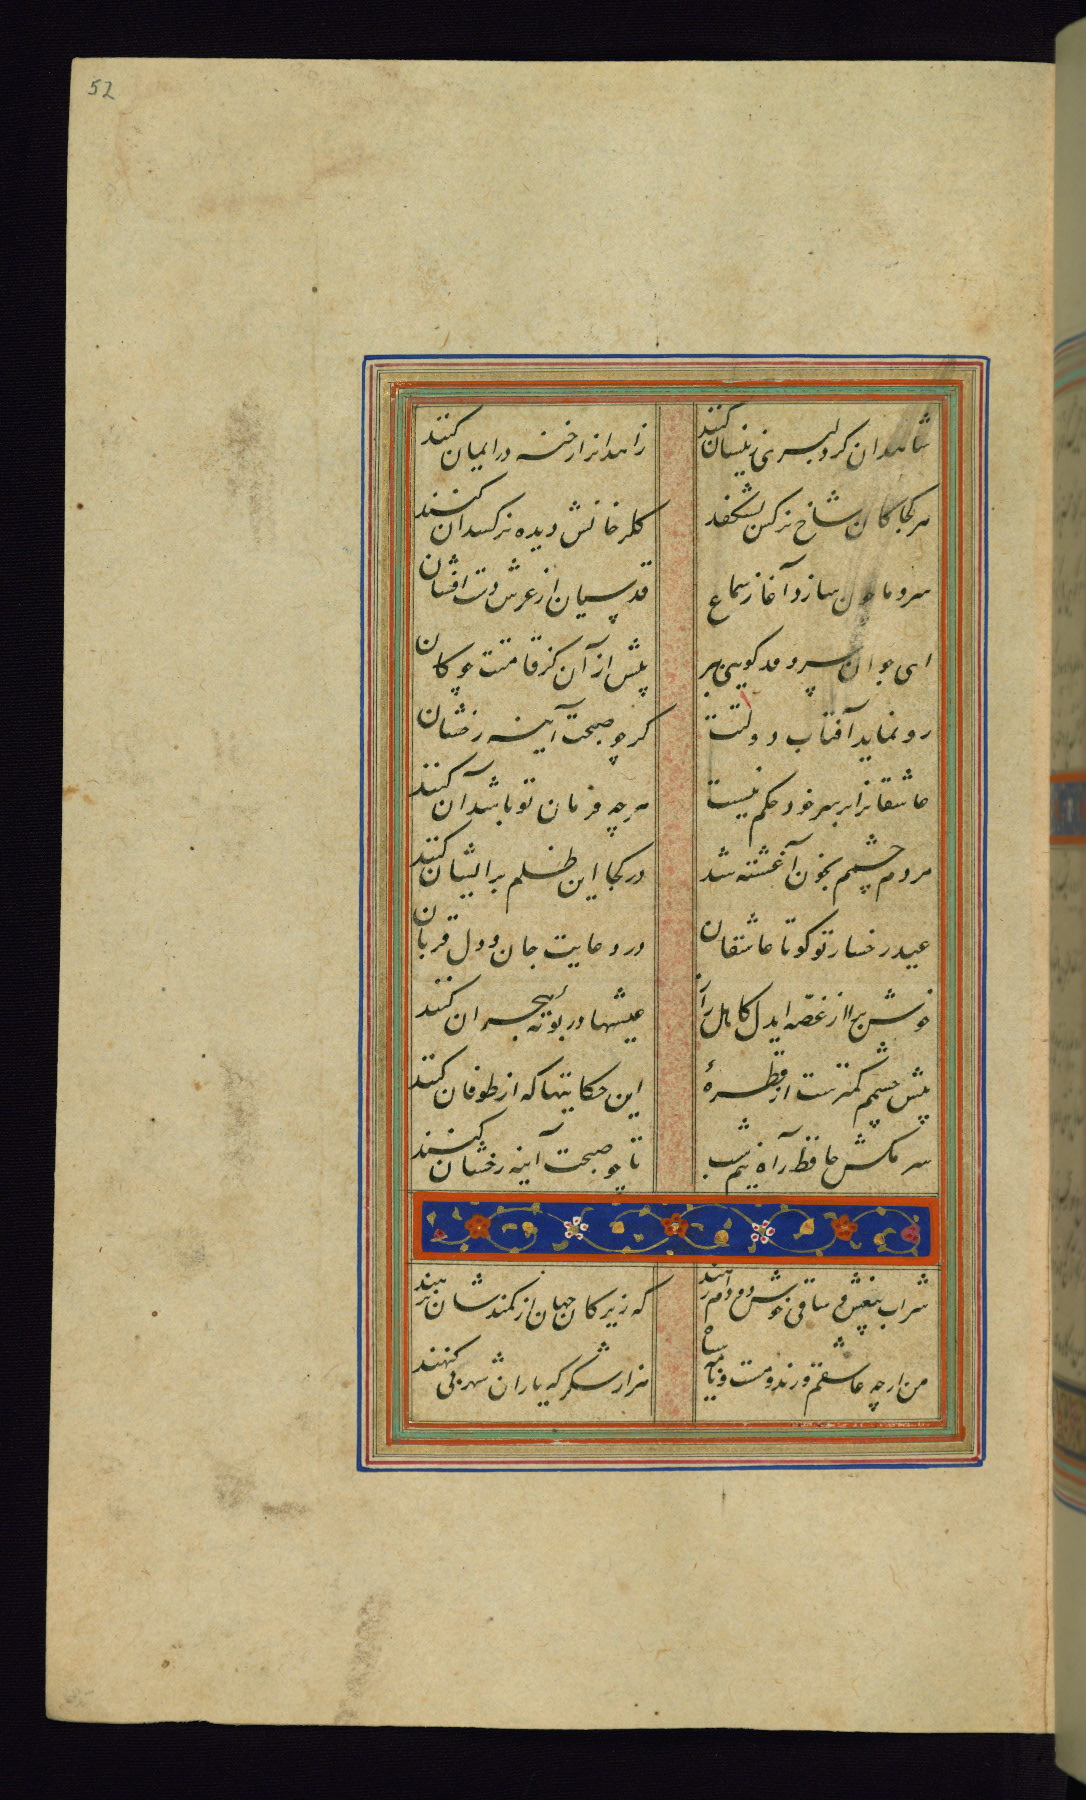 52
شاهدان کر دلبری زینسان کنند
زاهدانرا رخنه در ایمان کنند
هر کجا کان شاخ نرکس بشکفد
کلرخانش دیده نرکسدان کنند
سرو ما چون سازد آغاز سماع
قدسیان از عرش دست افشان
ای جوان سرو قد کویی ببر
پیش از آن کز قامتت چوکان
رو نماید آفتاب دولتت
کر چو صبحت آینه رخشان
عاشقانرا بر سر خود حکم نیست
هر چه فرمان تو باشد آن کنند
مردم چشمم بخون آغشته شد
در کجا این ظلم بر ایشان کنند
عید رخسار تو کو تا عاشقان
در وفایت جان و دل قربان
خوش برا از غصه ایدل کاهل راز
عیشها در بوته هجران کنند
پیش چشمم کمترست از قطرهٔ
این حکایتها که از طوفان کنند
سر مکش حافظ ز آه نیم شب
تا چو صبحت آینه رخشان کنند
شراب بیغش و ساقی خوش دو دام رهند
که زیرکان جهان از کمندشان نرهند
من ارچه عاشقم و رند و مست و نامه سیاه
هزار شکر که یاران شهر بی کنهند